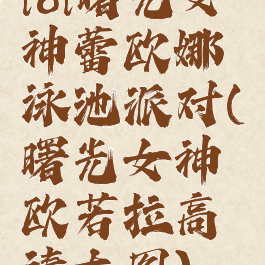 曙光女
神蕾欧娜
泳池派对(
曙光女神
欧若拉高
清大图)